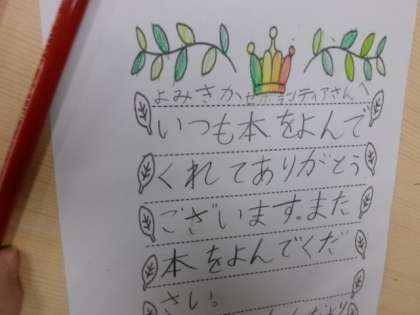 よみきかせボランティアさんへ
いつも本をよんで
くれてありがとう
ございます。また
本をよんでくだ
さい。